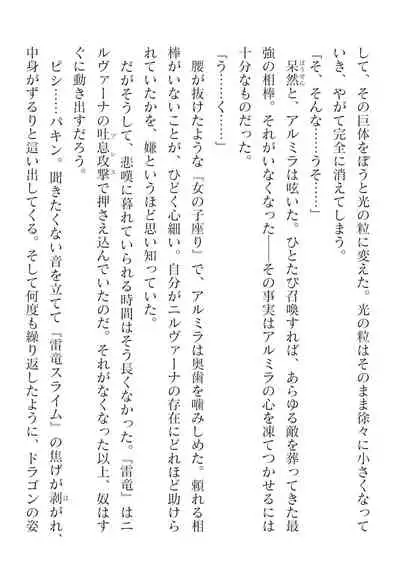 して、その巨体をぽうと光の粒に変えた。光の粒はそのまま徐々に小さくなって
いき、やがて完全に消えてしまう。
「そ、そんな……うそ……」
呆然と、アルミラは呟いた。ひとたび召喚すれば、あらゆる敵を葬ってきた最
強の相棒。それがいなくなった――その事実はアルミラの心を凍てつかせるには
十分なものだった。
「う……く……」
腰が抜けたような『女の子座り』で、アルミラは奥歯を噛みしめた。頼れる相
棒がいないことが、ひどく心細い。自分がニルヴァーナの存在にどれほど助けら
れていたかを、嫌というほど思い知っていた。
だがそうして、悲嘆に暮れていられる時間はそう長くなかった。『雷竜』はニ
ルヴァーナの吐息攻撃で押さえ込んでいたのだ。それがなくなった以上、奴はす
ぐに動き出すだろう。
ピシ……パキン。聞きたくない音を立てて『雷竜スライム』の焦げが剥がれ、
中身がずるりと這い出してくる。そして何度も繰り返したように、ドラゴンの姿